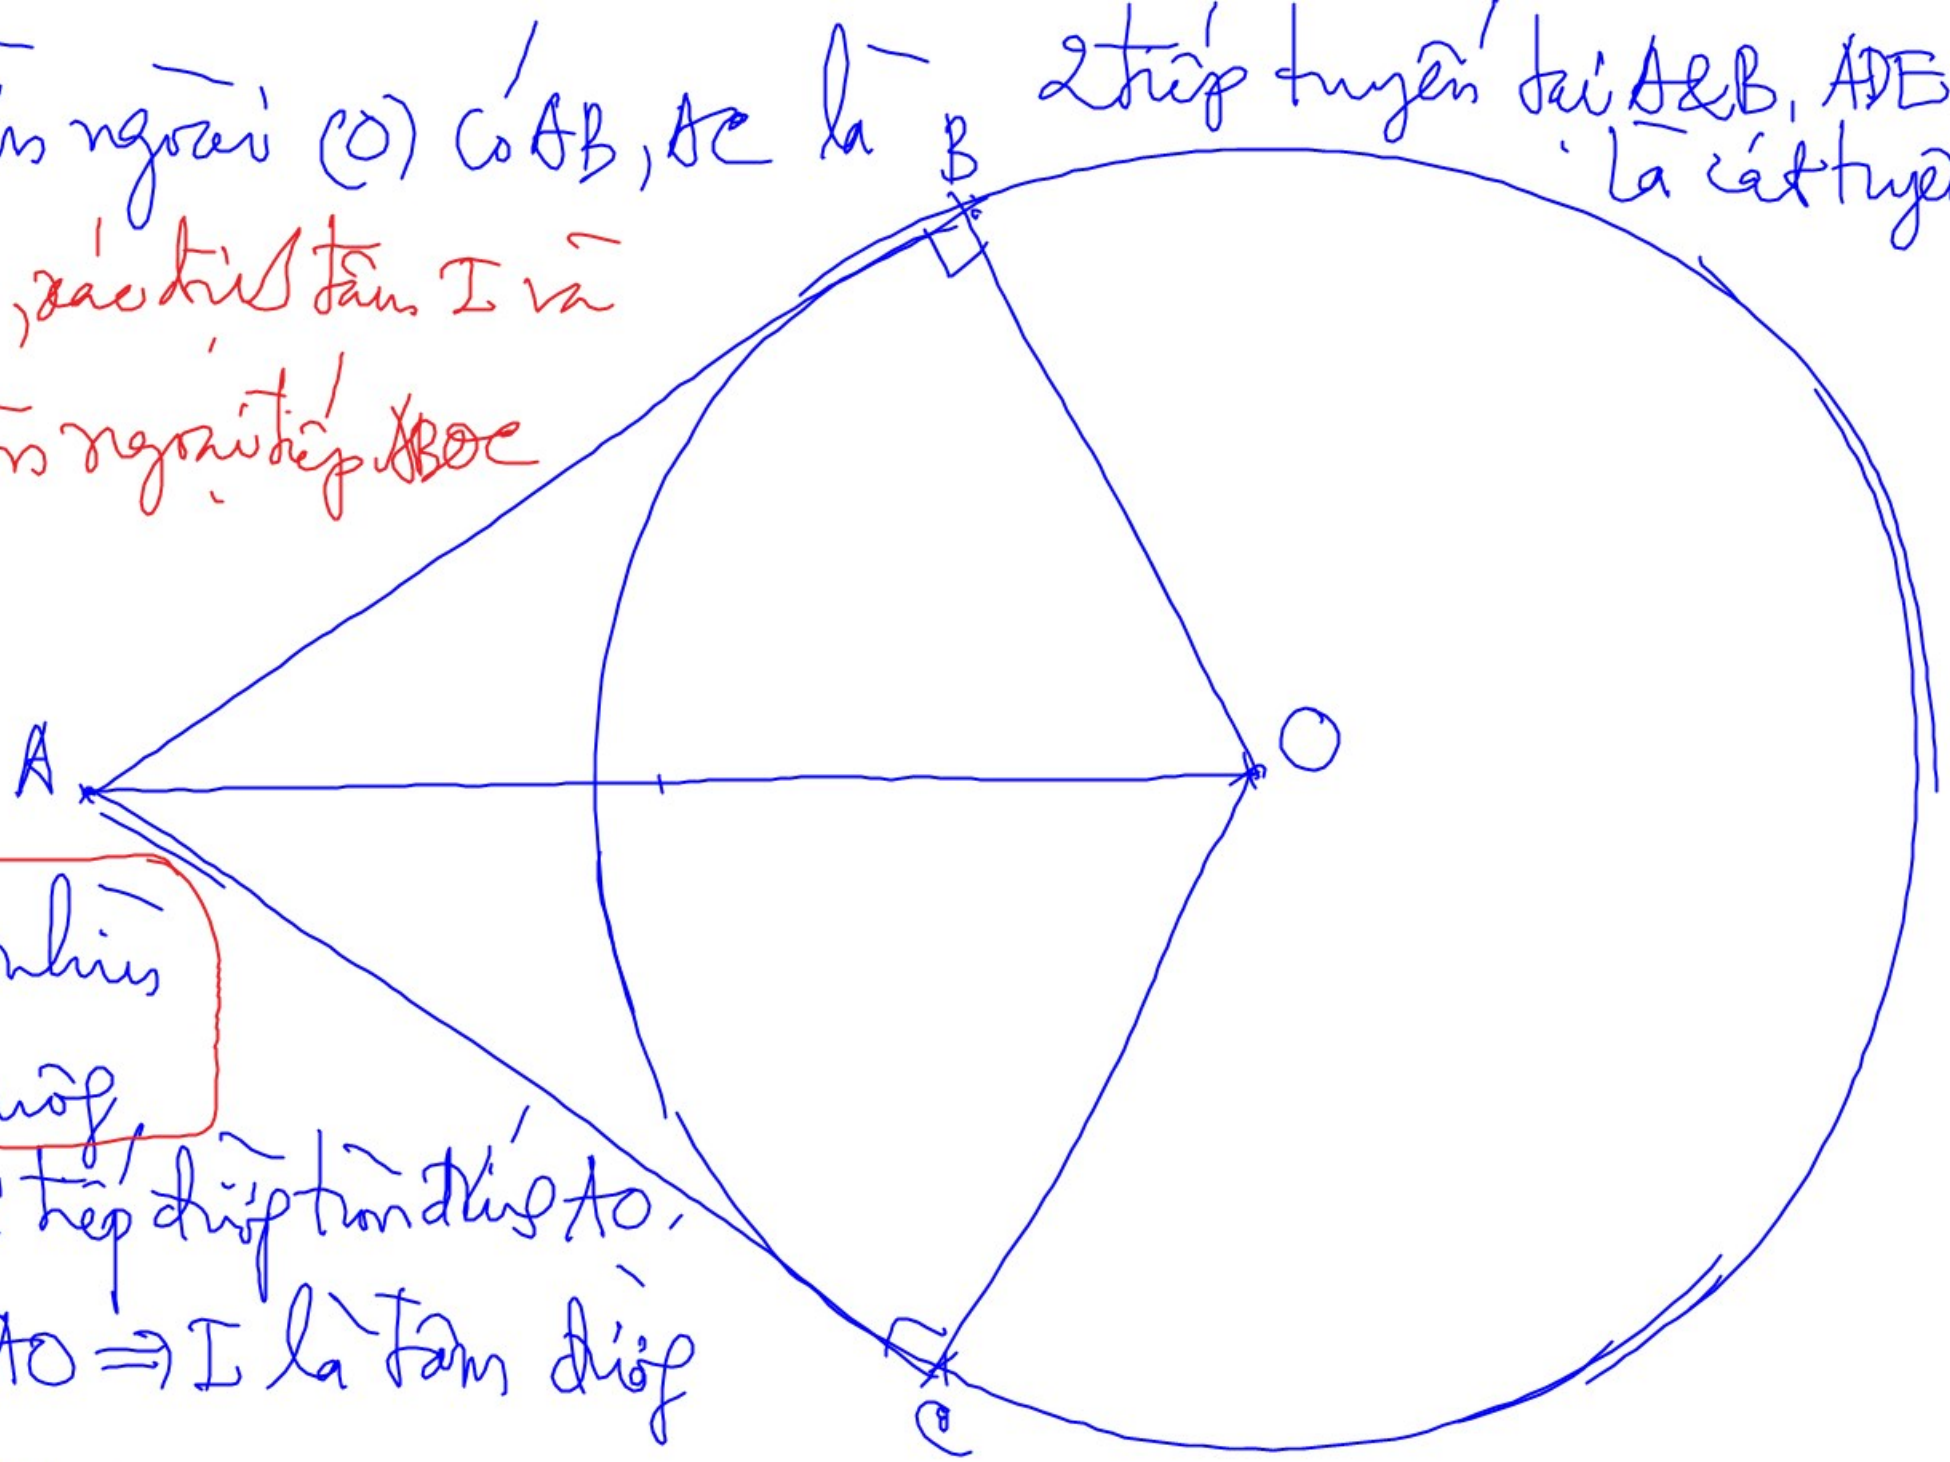 ngoài (O) có AB, AC là 2 tiếp tuyến tại A&B, ADE
là cát tuyế
, xác định tâm I và
ngoại tiếp ABOC
B
O
A
nhìn
tiếp đường tròn đkính AO.
AO ⇒ I là tâm đường
C